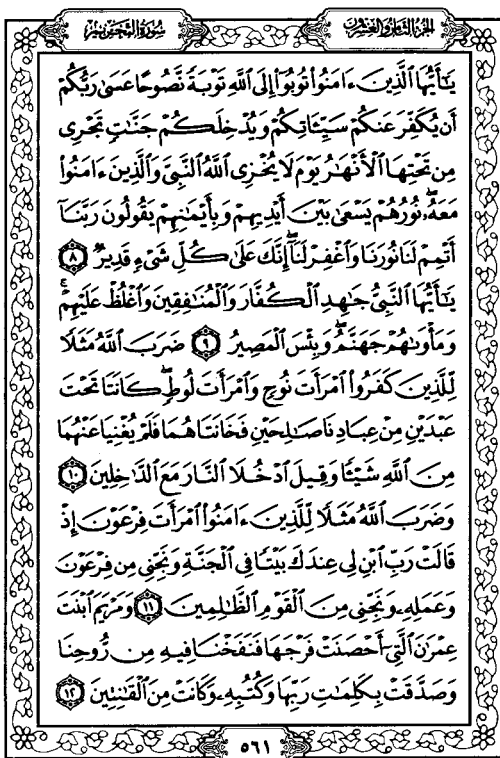 سُورَةُ التَّحْرِيمِ
الجُزْءُ الثَّامِنُ وَالعِشْرُونَ
يَٰٓأَيُّهَا ٱلَّذِينَ ءَامَنُوا۟ تُوبُوٓا۟ إِلَى ٱللَّهِ تَوْبَةً نَّصُوحًا عَسَىٰ رَبُّكُمْ
أَن يُكَفِّرَ عَنكُمْ سَيِّـَٔاتِكُمْ وَيُدْخِلَكُمْ جَنَّٰتٍ تَجْرِى
مِن تَحْتِهَا ٱلْأَنْهَٰرُ يَوْمَ لَا يُخْزِى ٱللَّهُ ٱلنَّبِىَّ وَٱلَّذِينَ ءَامَنُوا۟
مَعَهُۥۖ نُورُهُمْ يَسْعَىٰ بَيْنَ أَيْدِيهِمْ وَبِأَيْمَٰنِهِمْ يَقُولُونَ رَبَّنَآ
أَتْمِمْ لَنَا نُورَنَا وَٱغْفِرْ لَنَآۖ إِنَّكَ عَلَىٰ كُلِّ شَىْءٍ قَدِيرٌ ٨
يَٰٓأَيُّهَا ٱلنَّبِىُّ جَٰهِدِ ٱلْكُفَّارَ وَٱلْمُنَٰفِقِينَ وَٱغْلُظْ عَلَيْهِمْۚ
وَمَأْوَىٰهُمْ جَهَنَّمُۖ وَبِئْسَ ٱلْمَصِيرُ ٩ ضَرَبَ ٱللَّهُ مَثَلًا
لِّلَّذِينَ كَفَرُوا۟ ٱمْرَأَتَ نُوحٍ وَٱمْرَأَتَ لُوطٍۖ كَانَتَا تَحْتَ
عَبْدَيْنِ مِنْ عِبَادِنَا صَٰلِحَيْنِ فَخَانَتَاهُمَا فَلَمْ يُغْنِيَا عَنْهُمَا
مِنَ ٱللَّهِ شَيْـًٔا وَقِيلَ ٱدْخُلَا ٱلنَّارَ مَعَ ٱلدَّٰخِلِينَ ١٠
وَضَرَبَ ٱللَّهُ مَثَلًا لِّلَّذِينَ ءَامَنُوا۟ ٱمْرَأَتَ فِرْعَوْنَ إِذْ
قَالَتْ رَبِّ ٱبْنِ لِى عِندَكَ بَيْتًا فِى ٱلْجَنَّةِ وَنَجِّنِى مِن فِرْعَوْنَ
وَعَمَلِهِۦ وَنَجِّنِى مِنَ ٱلْقَوْمِ ٱلظَّٰلِمِينَ ١١ وَمَرْيَمَ ٱبْنَتَ
عِمْرَٰنَ ٱلَّتِىٓ أَحْصَنَتْ فَرْجَهَا فَنَفَخْنَا فِيهِ مِن رُّوحِنَا
وَصَدَّقَتْ بِكَلِمَٰتِ رَبِّهَا وَكُتُبِهِۦ وَكَانَتْ مِنَ ٱلْقَٰنِتِينَ ١٢
٥٦١